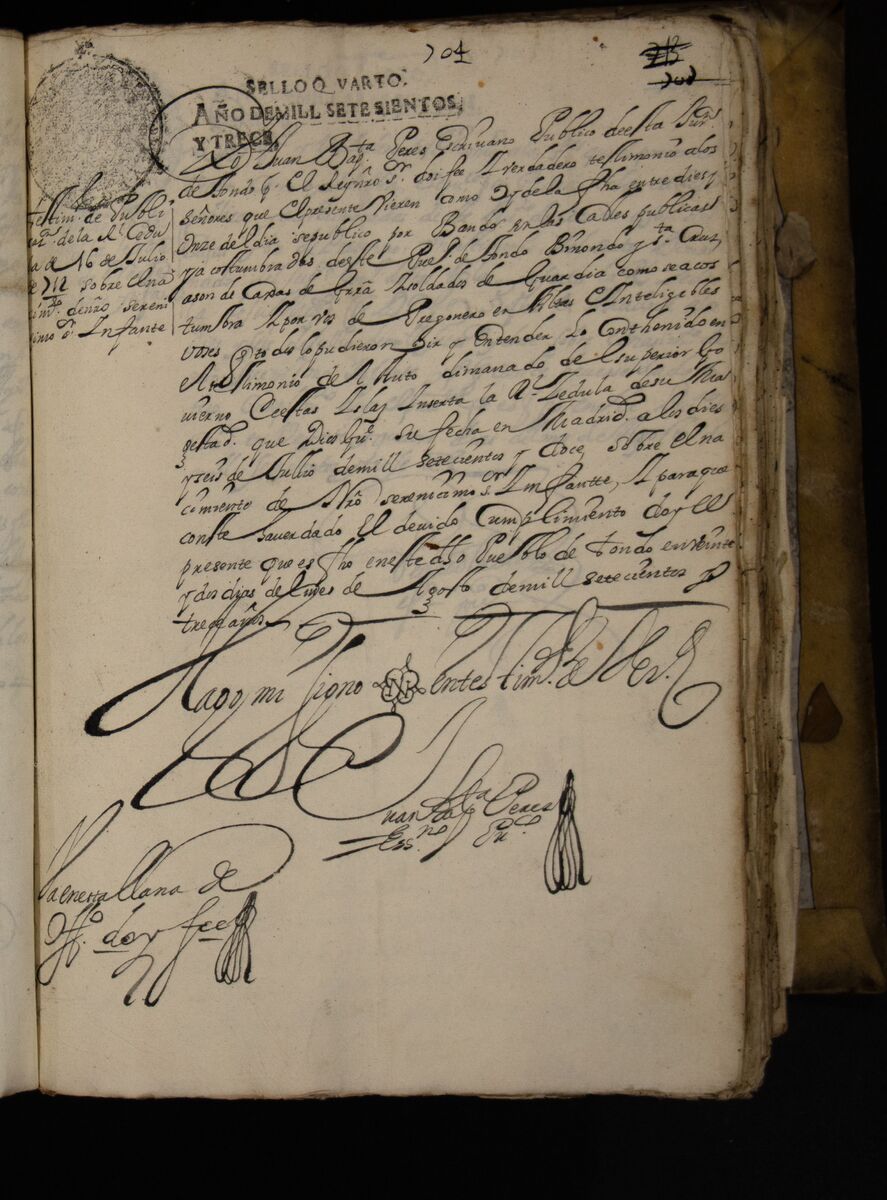 704
713
708
SELLO QVARTO.
AÑO DE MILL SETESIENTOS,
Y TRECE.
Testim.º de Publi
de la R.l Cedu
la de 16 de Julio
de 712 sobre el na
cim.to de nro sereni
simo Infante
Yo Juan Bap.ta Peres Escrivano Publico de esta Jur.
de tondo p. el Rey nrô S.r doi fee Y verdadero testimonio alos
señores que el presente vieren como oy dela fha entre dies y
onze del dia se publico por Bando en las Calles publicas
y acostumbrados de este Pue.o de tondo Binondo y s.ta Cruz
a son de Caxas de Grrâ Y soldados de Guardia como se acos
tumbra Y por vos de Pregonero en altas e Inteligibles
voses q todos lo pudieron oir y entender Lo Conthenido en
el testimonio de Auto dimanado del superior Go
vierno de estas Islas Inserta la R.l Zedula de su Mag
estad. que Dios Gu.e su fecha en Madrid. a los dies
y seis de Jullio de mill setecientos y doce sobre el na
cimiento de Nrô serenicimo s.r Infantte, Y para que
conste haver dado el devido Cumplimiento doy el
presente que es fho en este dho Pueblo de tondo en veinte
y dos dias del mes de Agosto de mill setecientos y
trece años
Hago mi signo en testim.º de Ver.d
Juan Bap.ta Peres
Ess.no Pu.co
Va en esta llana de
off.o doy fee